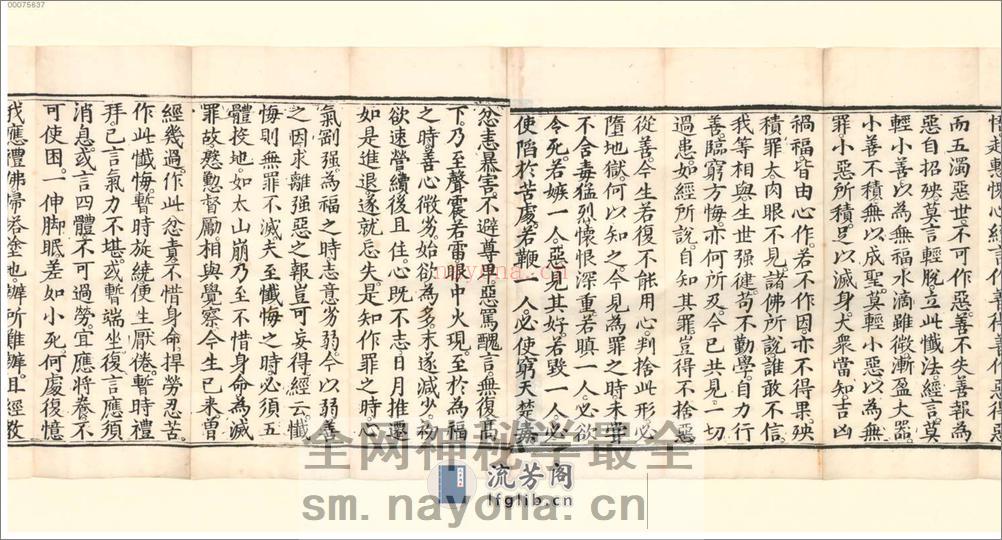 00075637
而五濁惡世。不可作惡。善不失善報。為
惡自招殃。莫言輕脫立此懺法。經言。莫
輕小善以為無福。水滴雖微漸盈大器。
小善不積。無以成聖。莫輕小惡以為無
罪。小惡所積。足以滅身。大衆當知。吉凶
禍福。皆由心作。若不作因。亦不得果。殃
積罪大。肉眼不見。諸佛所說。誰敢不信。
我等相與。生世强健。苟不勤學自力行
善。臨窮方悔。亦何所及。今已共見。一切
過患。如經所說。自知其罪。豈得不捨惡
從善。今生若復不能用心。判捨此形。必
墮地獄。何以知之。今見為罪之時。未嘗
不含毒猛烈。懷恨深重。若瞋一人。必欲
令死。若嫉一人。惡見其好。若毀一人。必
使陷於苦處。若鞭一人。必使窮天楚毒
忿恚暴害。不避尊卑。惡罵醜言。無復高
下。乃至聲震若雷。眼中火現。至於為福
之時。善心微劣。始欲為多。末遂減少。初
欲速營。續後且住。心既不志。日月推遷。
如是進退。遂就忘失。是知作罪之時。心
氣剛强。為福之時。志意劣弱。今以弱善
之因。求離强惡之報。豈可妄得。經云。懺
悔則無罪不滅。夫至懺悔之時。必須五
體投地。如太山崩。乃至不惜身命。為滅
罪故。慇懃督勵。相與覺察。今生已來。曾
經幾過。作此忿責。不惜身命。捍勞忍苦。
作此懺悔。暫時旋繞。便生厭倦。暫時禮
拜。已言氣力不堪。或暫端坐。復言應須
消息。或言四體不可過勞。宜應將養。不
可使困。一伸脚眠。差如小死。何處復憶
我應禮佛。掃塔塗地。辦所難辦。且經教
nayona.cn
全网神秘学最全
流芳阁
lfglib.cn
sm.nayona.cn